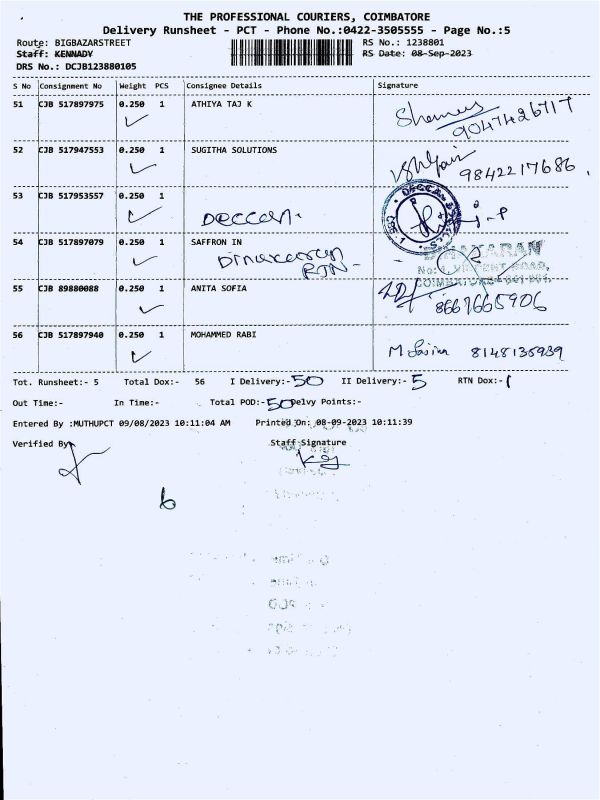 THE PROFESSIONAL COURIERS, COIMBATORE
Delivery Runsheet - PCT - Phone No.:0422-3505555 - Page No.:5
Route: BIGBAZARSTREET RS No.: 1238801
Staff: KENNADY RS Date: 08-Sep-2023
DRS No.: DCJB123880105
S No Consignment No Weight PCS Consignee Details Signature
51 CJB 517897975 0.250 1 ATHIYA TAJ K
9047426717
52 CJB 517947553 0.250 1 SUGITHA SOLUTIONS
9842217686
53 CJB 517953557 0.250 1
Deccan
54 CJB 517897079 0.250 1 SAFFRON IN
RTN
55 CJB 89880088 0.250 1 ANITA SOFIA
8667665906
56 CJB 517897940 0.250 1 MOHAMMED RABI
8148136939
Tot. Runsheet:- 5 Total Dox:- 56 I Delivery:- 50 II Delivery:- 5 RTN Dox:- 1
Out Time:- In Time:- Total POD:- 50 Delvy Points:-
Entered By :MUTHUPCT 09/08/2023 10:11:04 AM Printed On: 08-09-2023 10:11:39
Verified By Staff Signature